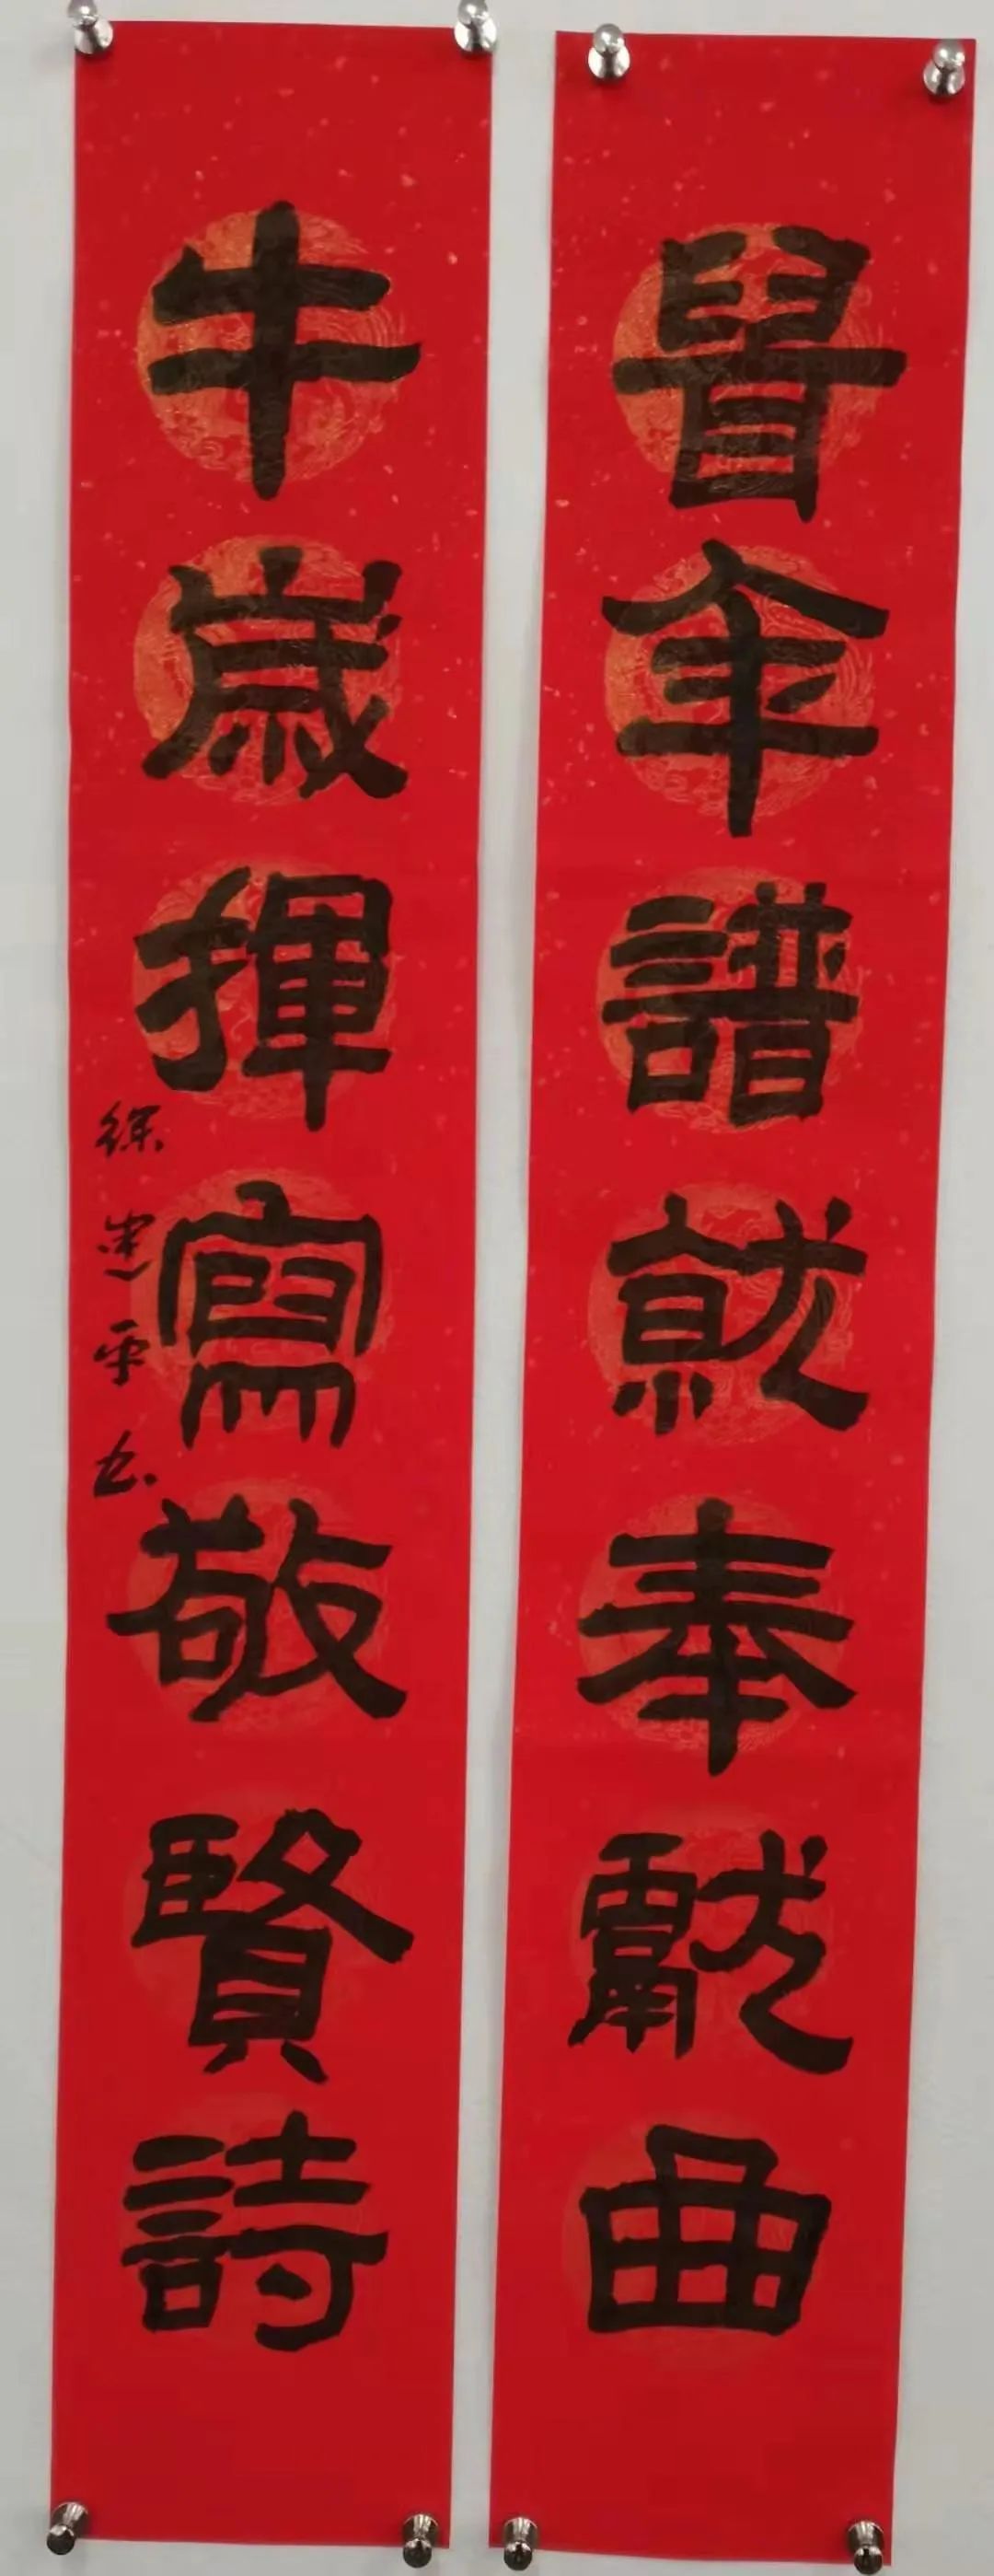 鼠年譜就奉獻曲
牛歲揮寫敬賢詩
徐建平书